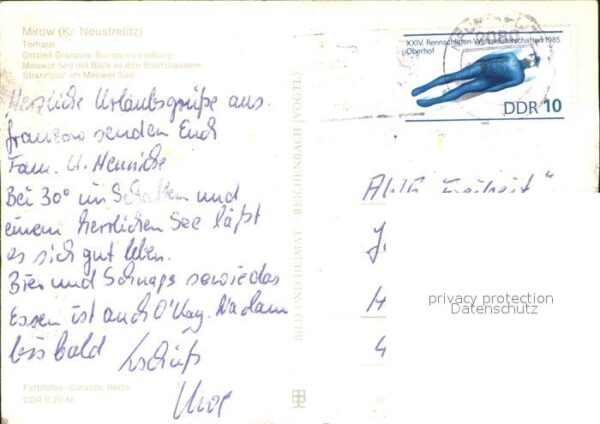 Mirow (Kr. Neustrelitz)
Torhaus
Ortsteil Granzow, Bungalowsiedlung
Mirower See mit Blick zu den Bootshäusern
Strandbad am Mirower See
Herzliche Urlaubsgrüße aus
Granzow senden Euch
Fam. U. Hennicke
Bei 30° im Schatten und
einem herrlichen See läßt
es sich gut leben.
Bier und Schnaps sowie das
Essen ist auch O'Kay.
bis bald Tschüß
Farbfotos: Corazza, Berlin
DDR 0,20 M
BILD UND HEIMAT · REICHENBACH (VOGTL)
XXIV. Rennschlitten-Weltmeisterschaften 1985
Oberhof
DDR 10
1985
2080
J
H
4
privacy protection
Datenschutz